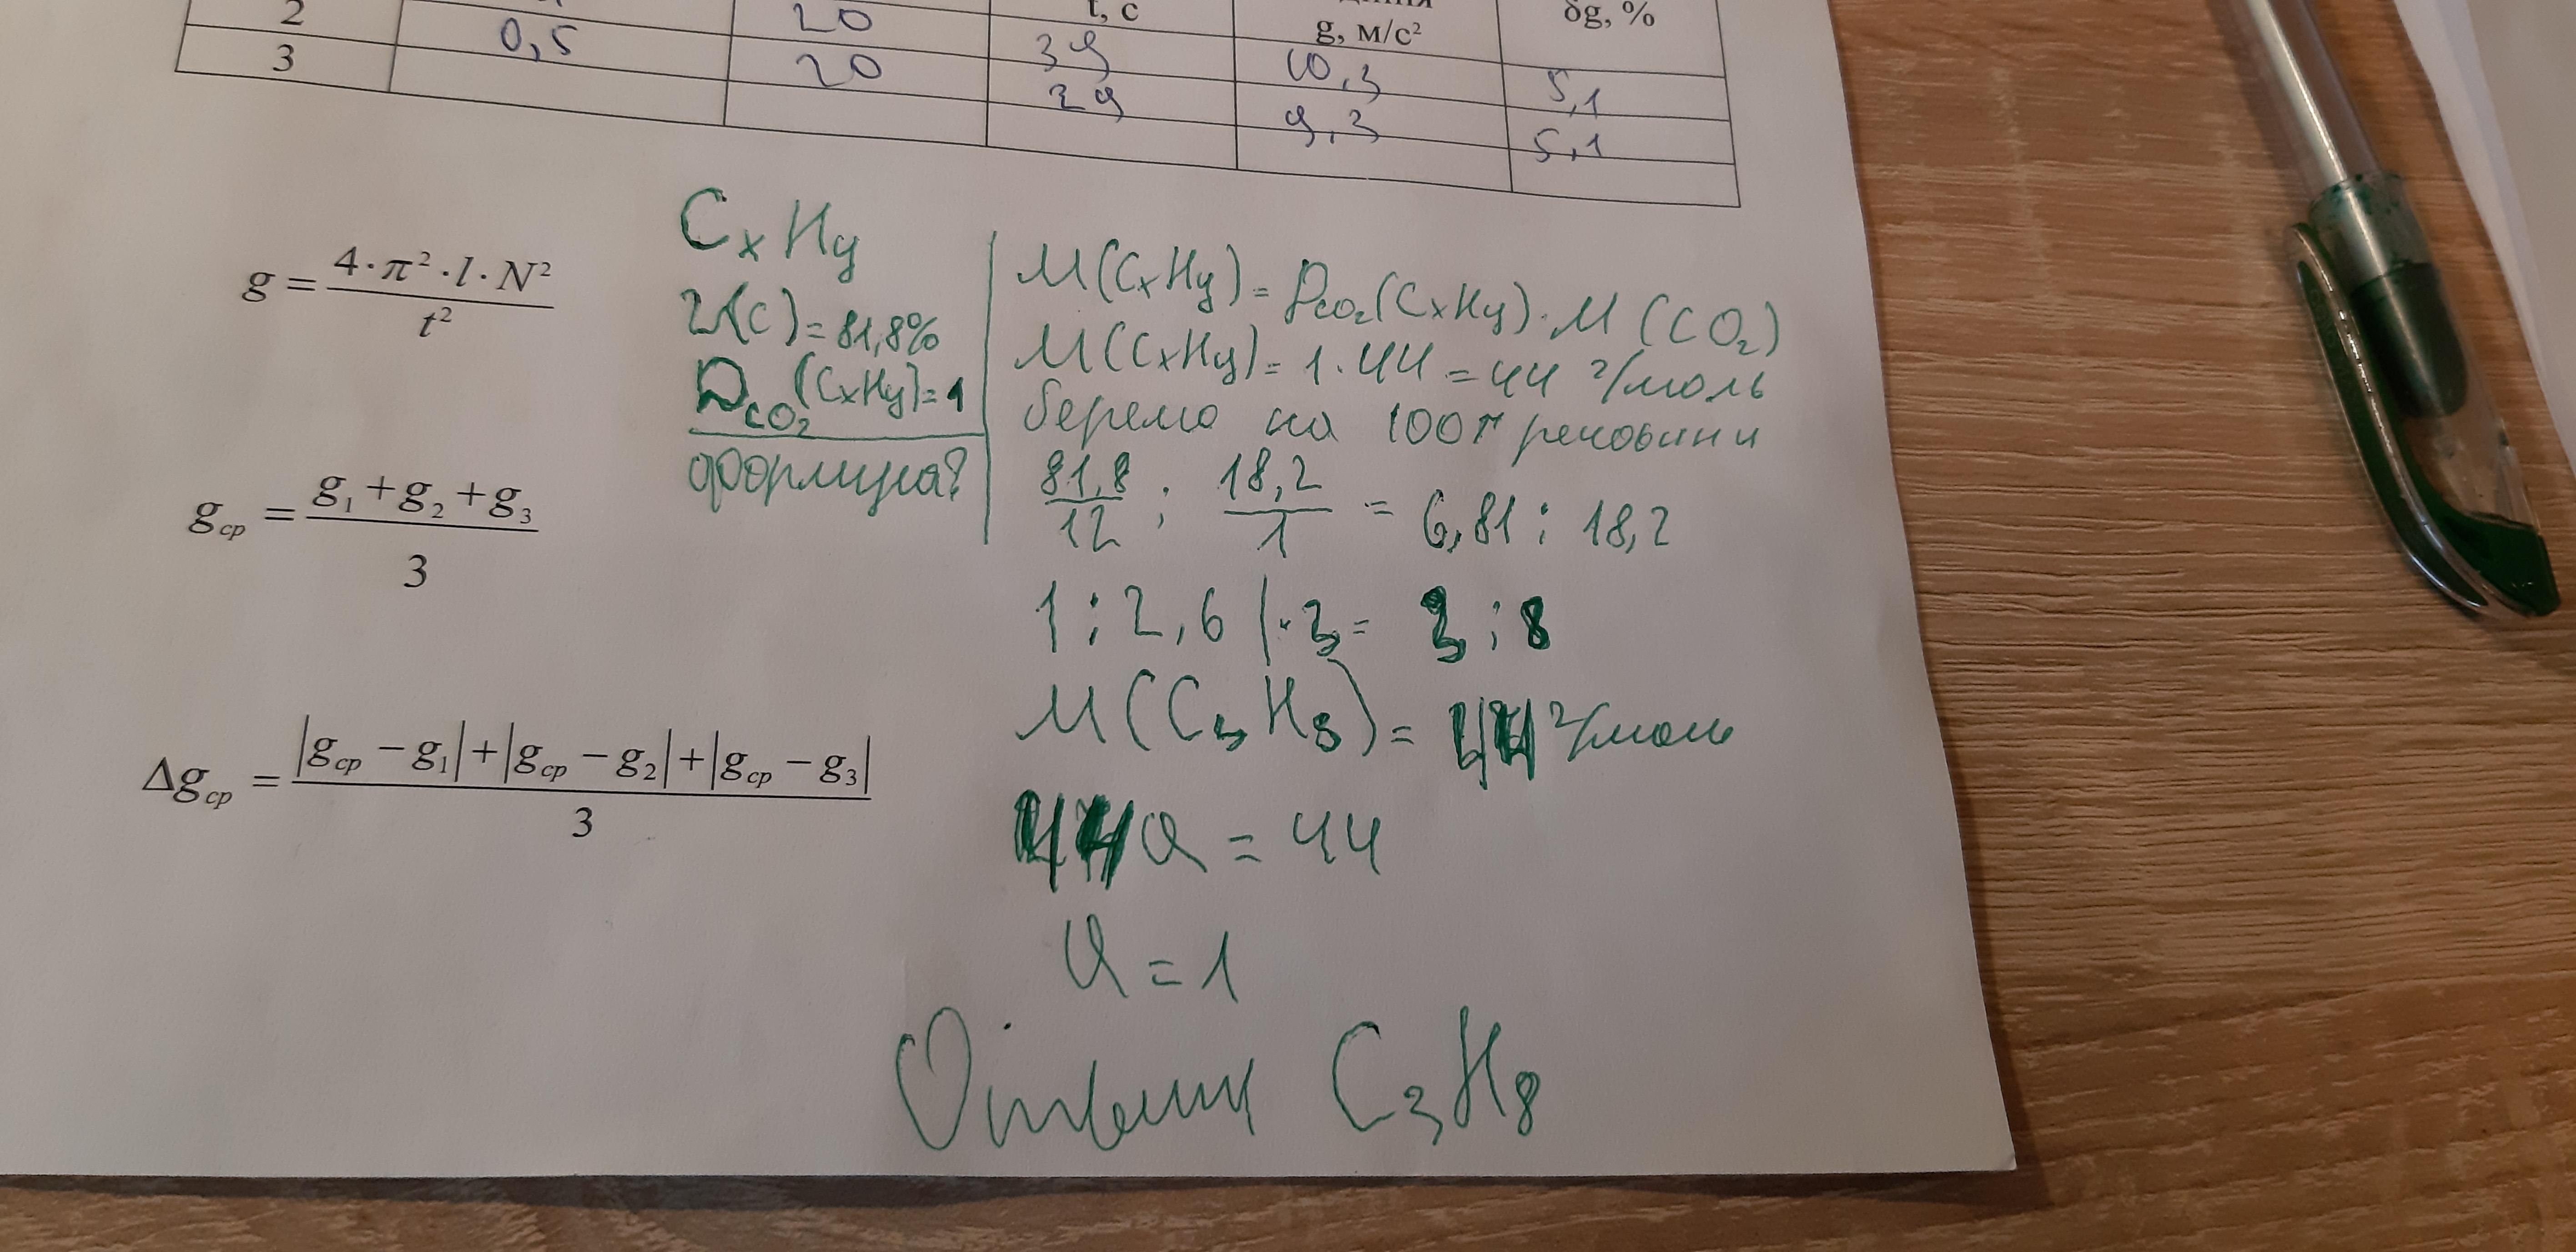 2 20 t, с g, м/с² δg, %
3 0,5 20 39 10,3 5,1
29 9,3 5,1
g = 4·π²·l·N² / t²
g ср = g₁ + g₂ + g₃ / 3
Δg ср = |g ср − g₁| + |g ср − g₂| + |g ср − g₃| / 3
CxHy
W(C) = 81,8%
D CO₂ (CxHy) = 1
формула?
M(CxHy) = D CO₂ (CxHy) · M(CO₂)
M(CxHy) = 1·44 = 44 г/моль
беремо на 100г речовини
81,8/12 : 18,2/1 = 6,81 : 18,2
1 : 2,6 |·3 = 3 : 8
M(C₃H₈) = 44 г/моль
44 a = 44
a = 1
C₃H₈